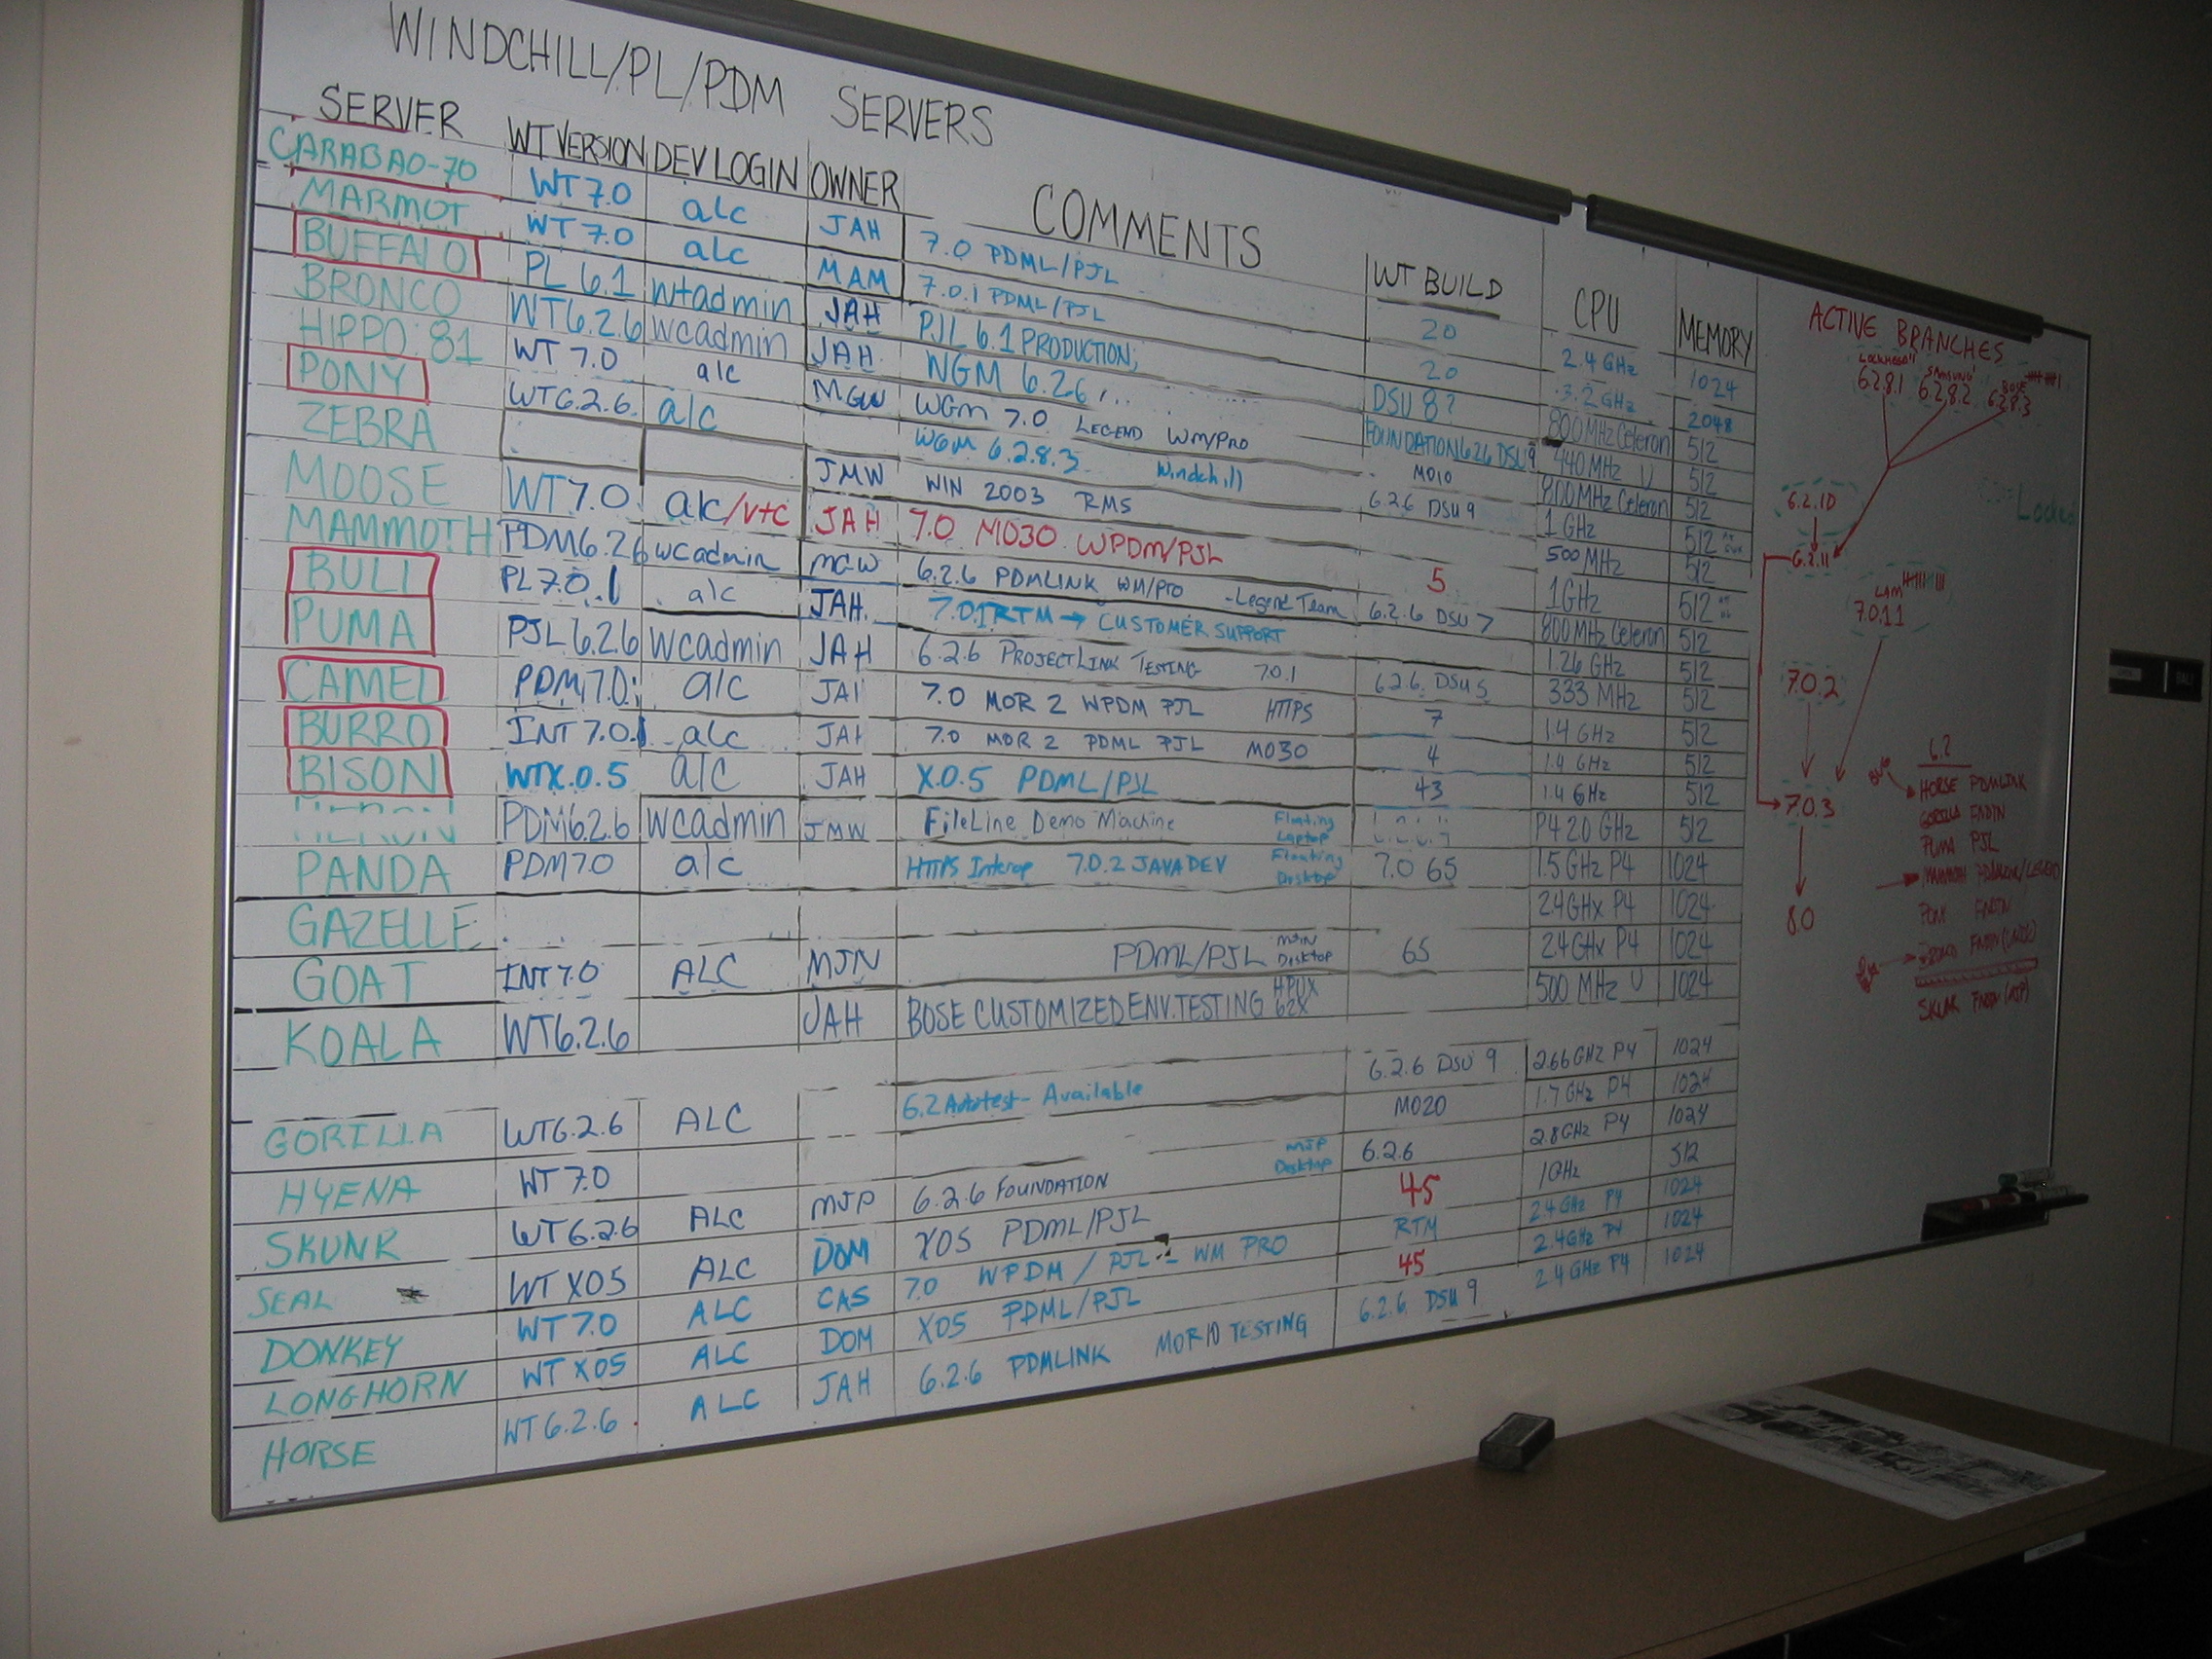 WINDCHILL/PL/PDM SERVERS
SERVER WT VERSION DEV LOGIN OWNER COMMENTS WT BUILD CPU MEMORY
CARABAO-70 WT 7.0 alc JAH 7.0 PDML/PJL 20 2.4 GHz 1024
MARMOT WT 7.0 alc MAM 7.0.1 PDML/PJL 20 3.2 GHz 2048
BUFFALO PL 6.1 wtadmin JAH PJL 6.1 PRODUCTION; DSU 8? 800MHz Celeron 512
BRONCO WT6.2.6 wcadmin JAH. NGM 6.26 FOUNDATION 626 DSU9 440 MHz U 512
HIPPO:81 WT 7.0 alc MGW WGM 7.0 LEGEND WM/PRO M010 800MHz Celeron 512
PONY WT6.2.6. alc WGM 6.2.8.3 Windchill 6.2.6 DSU 9 1 GHz 512
ZEBRA JMW WIN 2003 RMS 500 MHz 512
MOOSE WT7.0 alc/vtc JAH 7.0 M030 WPDM/PJL 5 1GHz 512
MAMMOTH PDM6.26 wcadmin MGW 6.2.6 PDMLINK WM/PRO -Legend Team 6.2.6 DSU 7 800MHz Celeron 512
BULL PL 7.0.1 alc JAH. 7.0.1RTM → CUSTOMER SUPPORT 1.26 GHz 512
PUMA PJL 6.2.6 wcadmin JAH 6.2.6 PROJECTLINK TESTING 7.0.1 6.2.6. DSU 5 333 MHz 512
CAMEL PDM7.0 alc JAH 7.0 MOR 2 WPDM PJL HTTPS 7 1.4 GHz 512
BURRO INT 7.0.1 alc JAH 7.0 MOR 2 PDML PJL M030 4 1.4 GHz 512
BISON WTX.0.5 alc JAH X.0.5 PDML/PJL 43 1.4 GHz 512
PDM6.2.6 wcadmin JMW FileLine Demo Machine Floating Laptop P4 2.0 GHz 512
PANDA PDM7.0 alc HTTPS Interop 7.0.2 JAVA DEV Floating Desktop 7.0 65 1.5 GHz P4 1024
GAZELLE 2.4GHx P4 1024
GOAT INT 7.0 ALC MJN PDML/PJL MJN Desktop 65 2.4GHx P4 1024
KOALA WT6.2.6 JAH BOSE CUSTOMIZED ENV. TESTING HPUX 62X 500 MHz U 1024
GORILLA WT6.2.6 ALC 6.2 Autotest - Available 6.2.6 DSU 9 2.66 GHz P4 1024
HYENA WT 7.0 M020 1.7 GHz P4 1024
SKUNK WT6.2.6 ALC MJP 6.2.6 FOUNDATION MJP Desktop 6.2.6 2.8GHz P4 1024
SEAL WT X05 ALC DOM X05 PDML/PJL 45 1GHz 512
DONKEY WT 7.0 ALC CAS 7.0 WPDM / PJL - WM PRO RTM 2.4 GHz P4 1024
LONGHORN WT X05 ALC DOM X05 PDML/PJL 45 2.4GHz P4 1024
HORSE WT6.2.6 ALC JAH 6.2.6 PDMLINK MOR10 TESTING 6.2.6. DSU 9 2.4 GHz P4 1024
ACTIVE BRANCHES
SAMSUNG BOSE
6.2.8.1 6.2.8.2 6.2.8.3
6.2.10
Locked
6.2.11
LAM
7.0.11
7.0.2
7.0.3
8.0
6.2
HORSE PDMLINK
GORILLA FNDTN
PUMA PJL
MAMMOTH PDMLINK/LEGEND
PONY FNDTN
SKUNK FNDTN (MJP)